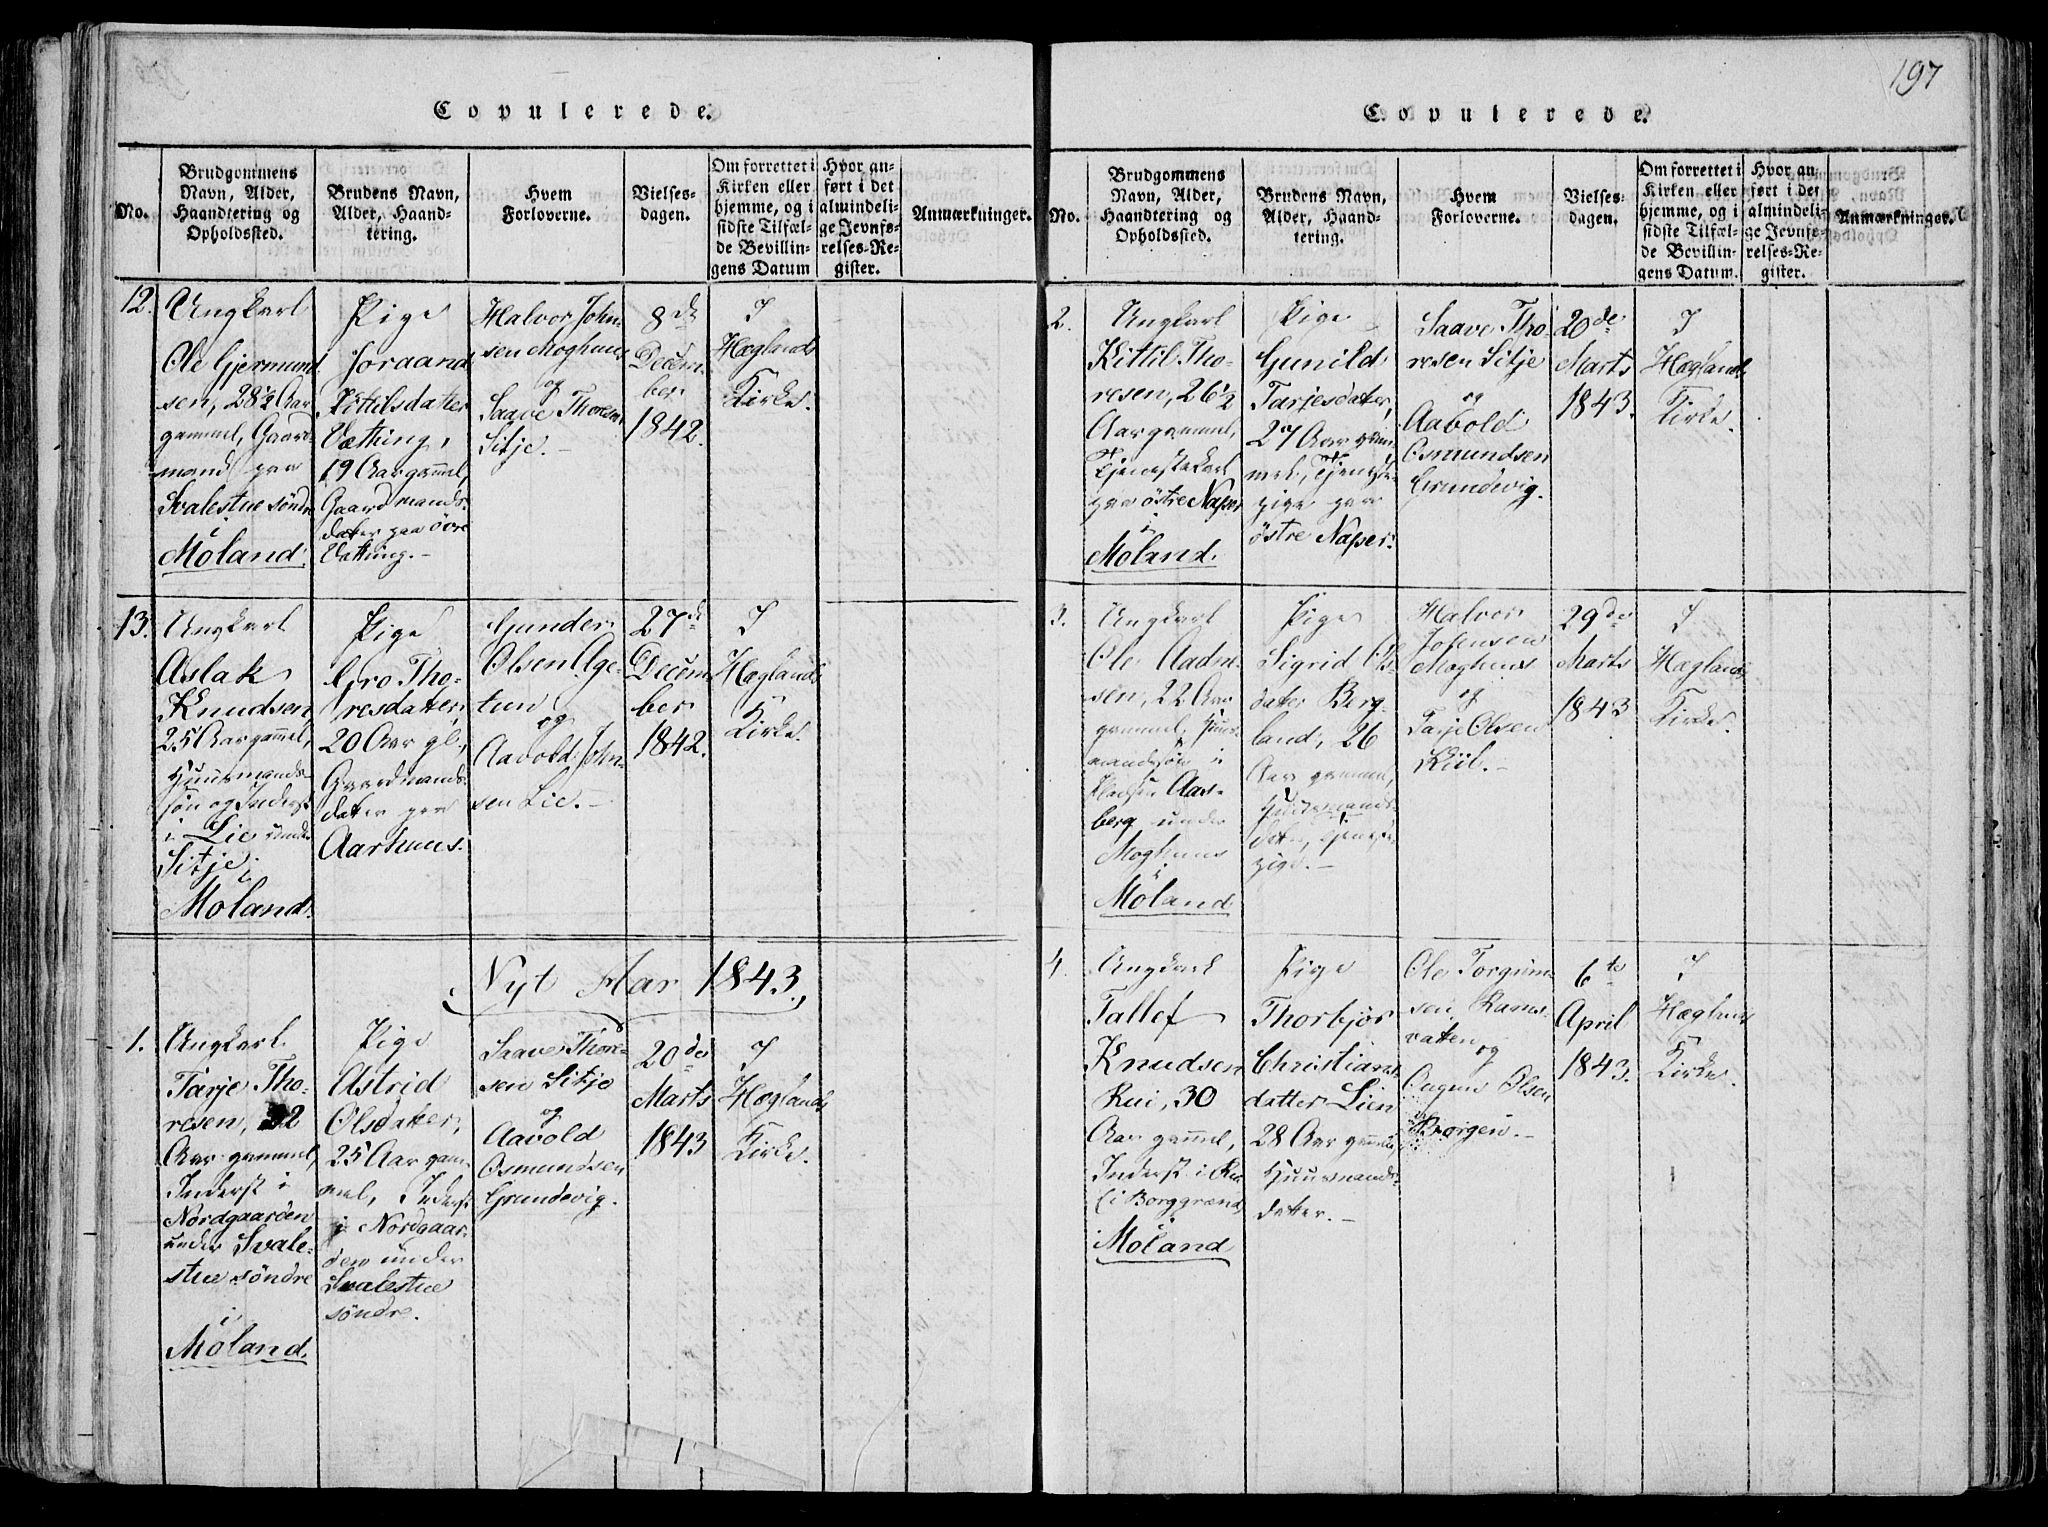 Copulerede.
No.
Brudgommens
Navn, Alder,
Haandtering og
Opholdssted.
Brudens Navn,
Alder, Haand-
tering.
Hvem
Forloverne.
Vielses-
dagen.
Om forrettet i
Kirken eller
hjemme, og i
sidste Tilfæl-
de Bevillin-
gens Datum
Hvor an-
ført i det
almindeli-
ge Jevnfø-
relses-Re-
gister.
Anmærkninger.
12.
Ungkarl
Ole Gjermund
sen, 28½ Aar
gammel, Gaard-
mand paa
Svalestue söndre
i
Moland.
Pige
Joraand
Kittilsdatter
Vætting,
19 Aar gammel,
Gaardmands-
datter paa övre
Vætting.-
Halvor John-
sen Moghuus
og
Saave Thoresen
Sitje.-
8de
Decem-
ber
1842.
I
Hæglands
Kirke.
13.
Ungkarl
Aslak
Knudsen,
25 Aar gammel,
Huusmands-
søn og Inderst
i Lie under
Sitje i
Moland.
Pige
Gro Tho-
resdatter,
20 Aar gl.,
Gaardmands-
datter paa
Aarhuus.
Gunder
Olsen Age-
tun
og
Aavold John-
sen Lie.-
27de
Decem-
ber
1842.
I
Hæglands
Kirke.
Nyt Aar 1843.
1.
Ungkarl
Tarje Tho-
resen, 32
Aar gammel,
Inderst i
Nordgaarden
under Svale-
stue söndre
i
Moland.
Pige
Astrid
Olsdatter,
25 Aar gam-
mel, Inderst
i Nordgaar-
den under
Svalestue
söndre.
Saave Thore-
sen Sitje
og
Aavold
Osmundsen
Grundevig.
20de
Marts
1843
I
Hæglands
Kirke.
197
Copulerede.
No.
Brudgommens
Navn, Alder,
Haandtering og
Opholdssted.
Brudens Navn,
Alder, Haand-
tering.
Hvem
Forloverne.
Vielses-
dagen.
Om forrettet i
Kirken eller
hjemme, og i
sidste Tilfæl-
de Bevillin-
gens Datum.
Hvor an-
ført i det
almindeli-
ge Jevnfø-
relses-Re-
gister.
Anmærkninger.
2.
Ungkarl
Kittil Tho-
resen, 26½
Aar gammel,
Tjenestekarl
paa östre Naper
i
Moland.
Pige
Gunild
Tarjesdatter,
27 Aar gam-
mel, Tjeneste-
pige paa
östre Naper.
Saave Tho-
resen Sitje
og
Aabold
Osmundsen
Grundevig.
20de
Marts
1843.
I
Hæglands
Kirke.
3.
Ungkarl
Ole Aadn-
sen, 22 Aar
gammel, Huus-
mandssøn i
Pladsen Aas-
berg under
Moghuus
i
Moland
Pige
Sigrid Ols-
datter Berg-
land, 26
Aar gammel,
Huusmands-
datter, Tjeneste-
pige.-
Halvor
Johnsen
Moghuus
og
Tarje Olsen
Kiil.-
29de
Marts
1843
I
Hæglands
Kirke.
4.
Ungkarl
Tallef
Knudsen
Rui, 30
Aar gammel,
Inderst i Rui
(i Borggrænd)
i Moland
Pige
Thorbjör
Christians-
datter Lien
28 Aar gammel,
Huusmands-
datter.-
Ole Torgrim-
sen Rams-
vatten
og
Olsen
Borgen.-
6te
April
1843.
I
Hæglands
Kirke.